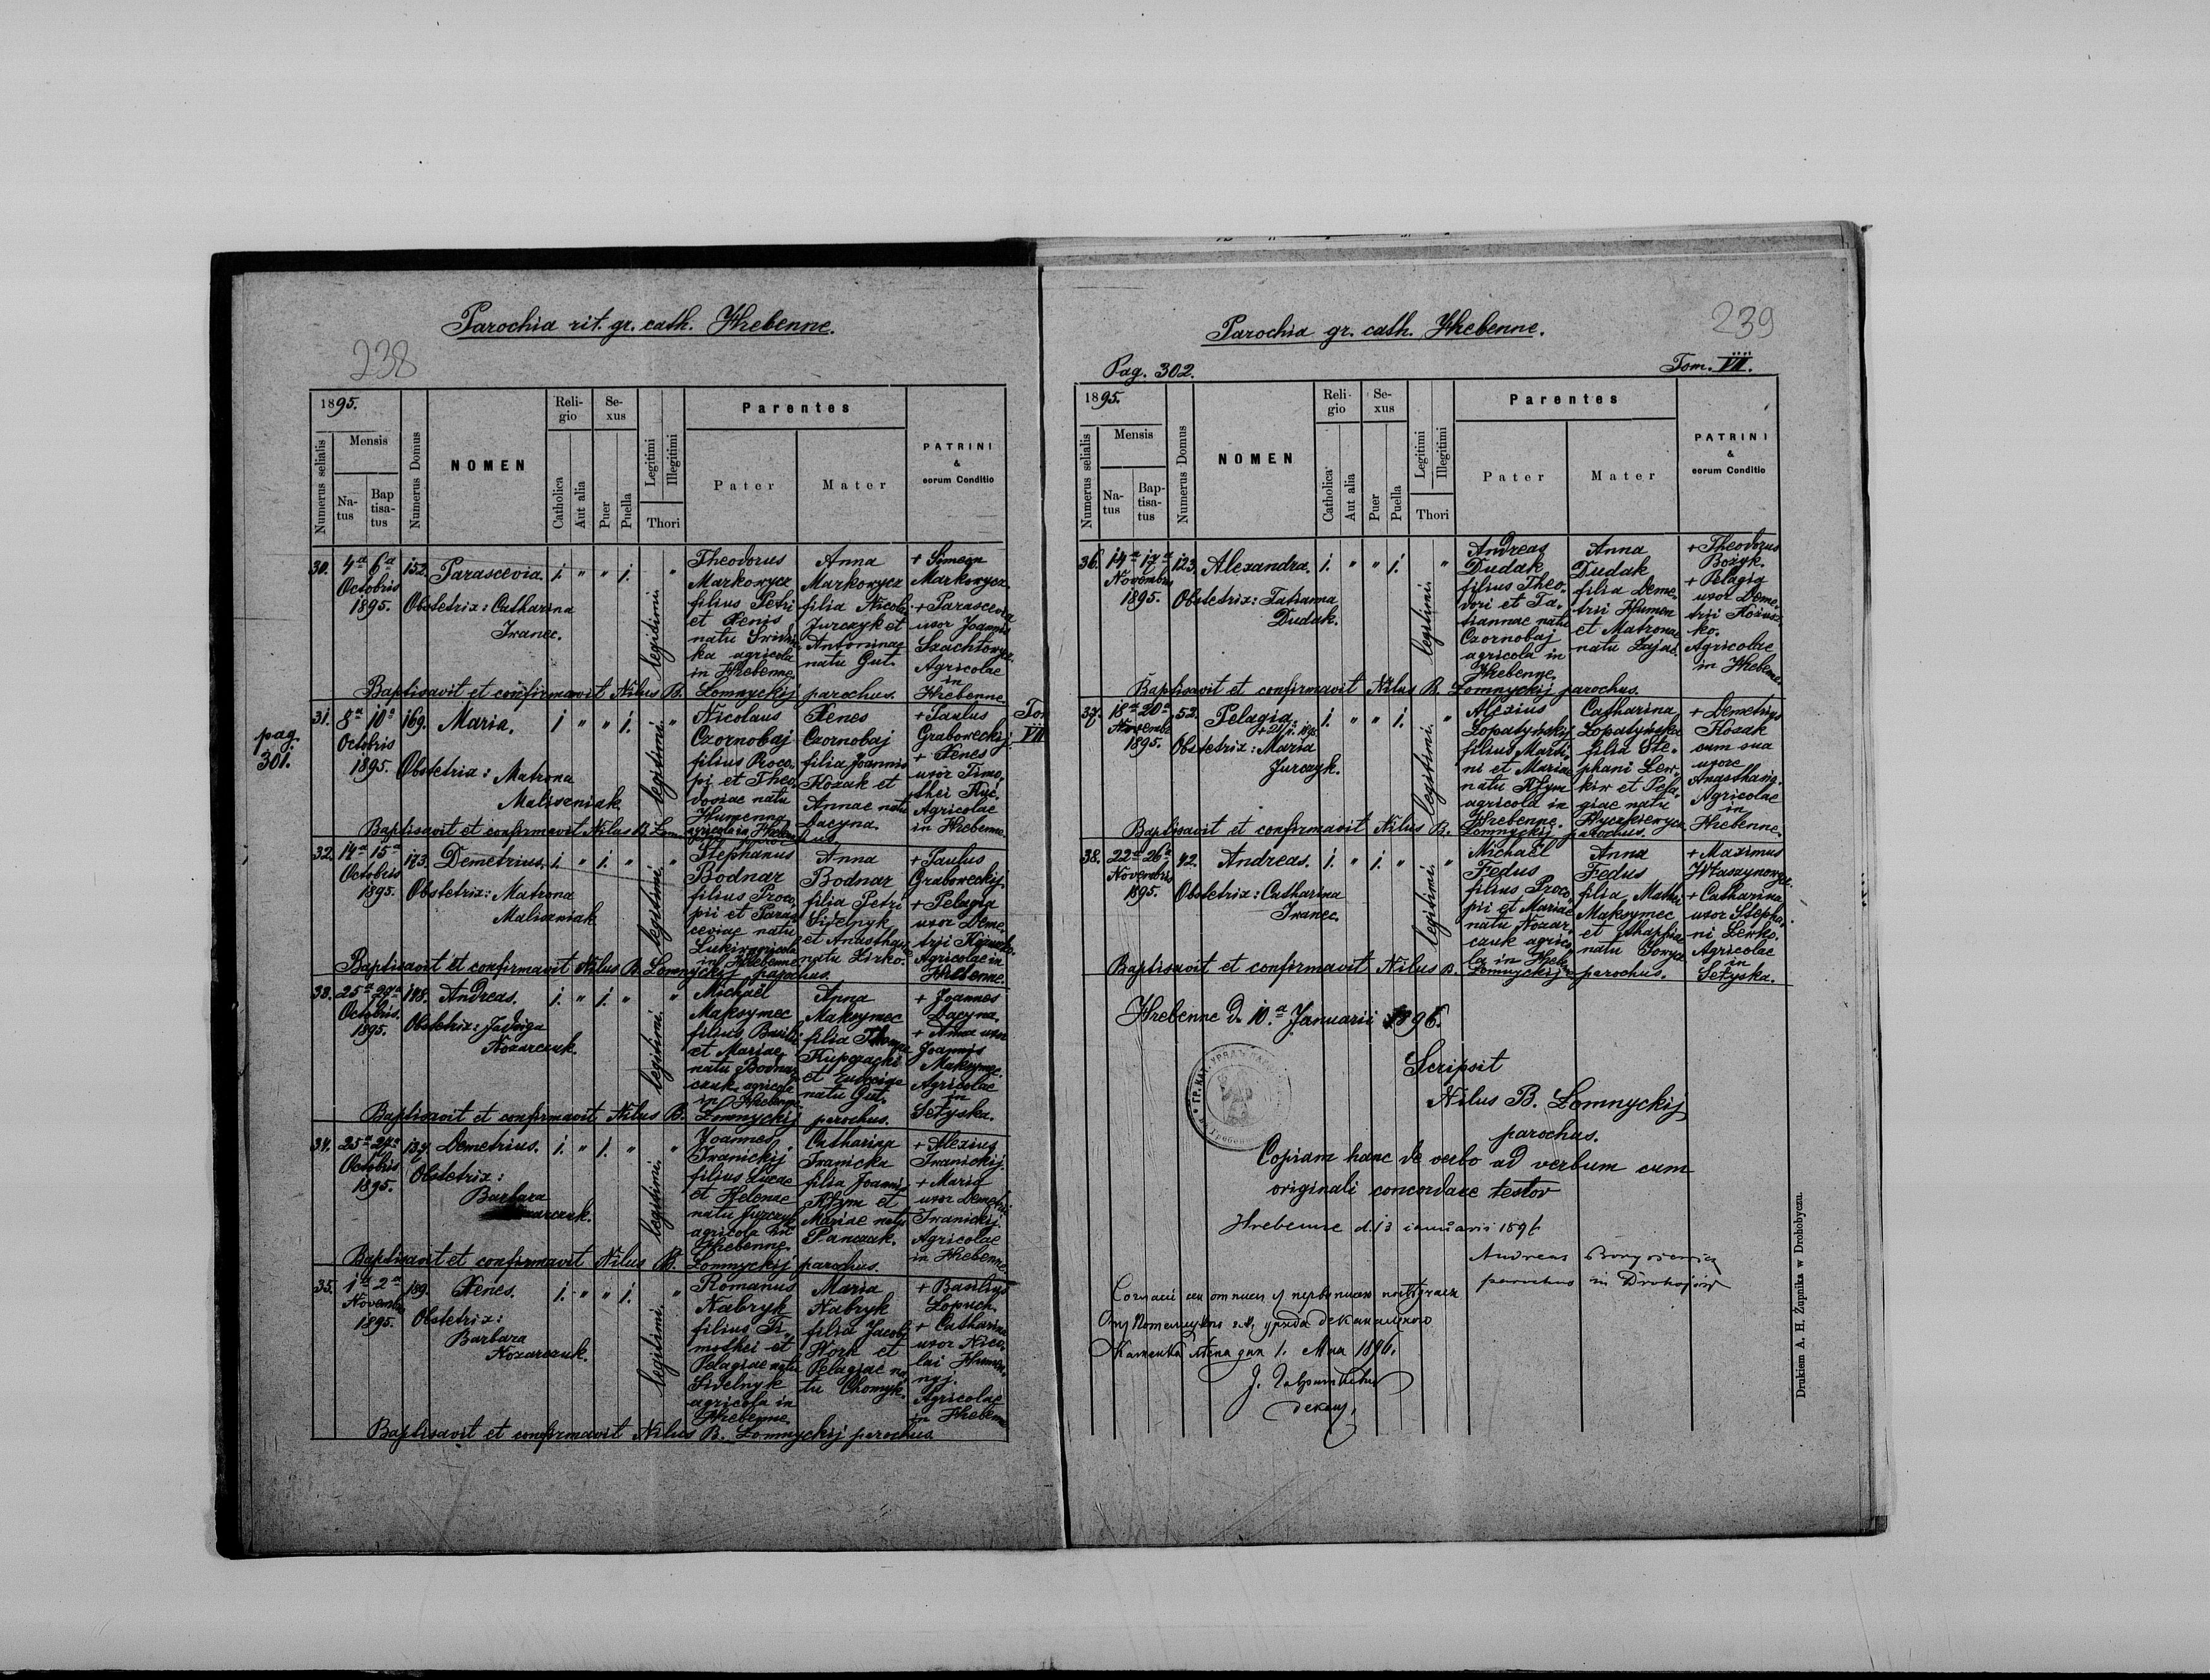 Parochia rit. gr. cath. Hrebenne.
238
pag.
301.
1895.
Numerus serialis
Mensis
Natus
Baptisatus
Numerus Domus
NOMEN
Religio
Catholica
Aut alia
Sexus
Puer
Puella
Legitimi
Illegitimi
Thori
Parentes
Pater
Mater
PATRINI
&
eorum Conditio
30. 4a 6a 152. Parascevia. 1. " " 1. "
Octobris
1895. Obstetrix: Catharina
Iwanec.
legitimi.
Theodorus
Markowycz
filius Petri
et Xenis
natu
agricola
in Hrebenne.
Anna
Markowycz
filia Nicolai
Jurczyk et
Antoninae
natu Gut.
+ Simeon
Markowycz
+ Parascevia
uxor Joannis
Agricolae
in
Hrebenne.
Baptisavit et confirmavit Nilus B. Lomnyckij parochus.
31. 8a 10a 169. Maria. 1 " " 1. "
Octobris
1895. Obstetrix: Matrona
Maliszniak.
legitimi.
Nicolaus
Czornobaj
filius Proco-
pi et Theo-
dosiae natu
Humenna
agricola in Hrebenne
Xenes
Czornobaj
filia Joannis
Kozak et
Annae natu
Dacyna.
+ Paulus
Graboweckij.
+ Xenes
uxor Timo-
thei
Agricolae
in Hrebenne.
Tom
VII
Baptisavit et confirmavit Nilus B.
32. 14a 15a 173. Demetrius. 1. " 1. " "
Octobris
1895. Obstetrix: Matrona
Maliszniak
legitimi.
Stephanus
Bodnar
filius Proco-
pii et Paras-
ceviae natu
in Hrebenne
Anna
Bodnar
filia Petri
Sidelnyk
et Anasthasiae
natu
+ Paulus
Graboweckij.
+ Pelagia
uxor Deme-
trii
Agricolae in
Hrebenne.
Baptisavit et confirmavit Nilus B. Lomnyckij parochus.
33. 25a 27a 178. Andreas. 1. " 1. " "
Octobris.
1895. Obstetrix: Jadviga
Nozarczuk.
legitimi.
Michaël
Maksymec
filius Basilii
et Mariae
natu Bodnar-
czuk agricola
in Hrebenne
Anna
Maksymec
filia Thomae
et Eudociae
natu Gut.
+ Joannes
Dacyna.
+ Anna uxor
Joannis
Maksymec.
Agricolae
in
Sełyska.
Baptisavit et confirmavit Nilus B. Lomnyckij parochus.
34. 25a 27a Demetrius. 1. " 1. " "
Octobris
1895. Obstetrix:
Barbara
Nozarczuk.
legitimi.
Joannes
Iwanickij
filius Lucae
et Helenae
natu Jurczyk
agricola in
Hrebenne.
Catharina
Iwanicka
filia Joannis
Kłym et
Mariae natu
Panczuk.
+ Alexius
Iwanickij.
+ Maria
uxor Demetrii
Iwanickij.
Agricolae
in Hrebenne.
Baptisavit et confirmavit Nilus B. Lomnyckij parochus.
35. 1a 2a 189. Xenes. 1. " " 1. "
Novembris
1895. Obstetrix:
Barbara
Nozarczuk.
legitimi.
Romanus
Nabryk
filius Ti-
mothei et
Pelagiae natu
Sidelnyk
agricola in
Hrebenne.
Maria
Nabryk
filia Jacobi
Work et
Pelagiae na-
tu Chomyk.
+ Basilius
Łopuch.
+ Catharina
uxor Nico-
lai Humen-
nyj.
Agricolae
in Hrebenne
Baptisavit et confirmavit Nilus B. Lomnyckij parochus.
239
Parochia gr. cath. Hrebenne.
Pag. 302.
Tom. VII.
1895.
Numerus serialis
Mensis
Natus
Baptisatus
Numerus Domus
NOMEN
Religio
Catholica
Aut alia
Sexus
Puer
Puella
Legitimi
Illegitimi
Thori
Parentes
Pater
Mater
PATRINI
&
eorum Conditio
36. 14a 17a 123. Alexandra. 1. " " 1. "
Novembris
1895. Obstetrix: Tatianna
Dudak.
legitimi.
Andreas
Dudak
filius Theo-
dori et Ta-
tiannae natu
Czornobaj
agricola in
Hrebenne.
Anna
Dudak
filia Deme-
trii Humen
et Matronae
natu Zajac.
+ Theodorus
Bożyk.
+ Pelagia
uxor Deme-
trii
ko.
Agricolae
in Hrebenne.
Baptisavit et confirmavit Nilus B. Lomnyckij parochus.
37. 18a 20a 52. Pelagia. 1. " " 1. "
Novembris
1895. Obstetrix: Maria
Jurczyk.
legitimi.
Alexius
Łopatyńskij
filius Marti-
ni et Mariae
natu Kłym
agricola in
Hrebenne.
Catharina
Łopatyńska
filia Ste-
phani Lew-
kiw et Pela-
giae natu
+ Demetrius
Kozak
cum sua
uxore
Anasthasia.
Agricolae
in
Hrebenne.
Baptisavit et confirmavit Nilus B. Lomnyckij parochus.
38. 22a 26a 42. Andreas. 1. " 1. " "
Novembris
1895. Obstetrix: Catharina
Iwanec.
legitimi.
Michaël
Fedus
filius Proco-
pii et Mariae
natu Nozar-
czuk agrico-
la in Hrebe-
Anna
Fedus
filia Mathei
Maksymec
et Ahaphiae
natu
+ Maximus
+ Catharina
uxor Stepha-
ni Lewko.
Agricolae
in
Sełyska.
Baptisavit et confirmavit Nilus B. Lomnyckij parochus.
Hrebenne d. 10.a Januarii 1896.
Scripsit
Nilus B. Lomnyckij
parochus.
Copiam hanc de verbo ad verbum cum
originali concordare testor
Hrebenne d. 13 januaris 1896
Andreas
parochus in
1. Мая 1896.
декан.
Drukiem A. H. Żupnika w Drohobyczu.